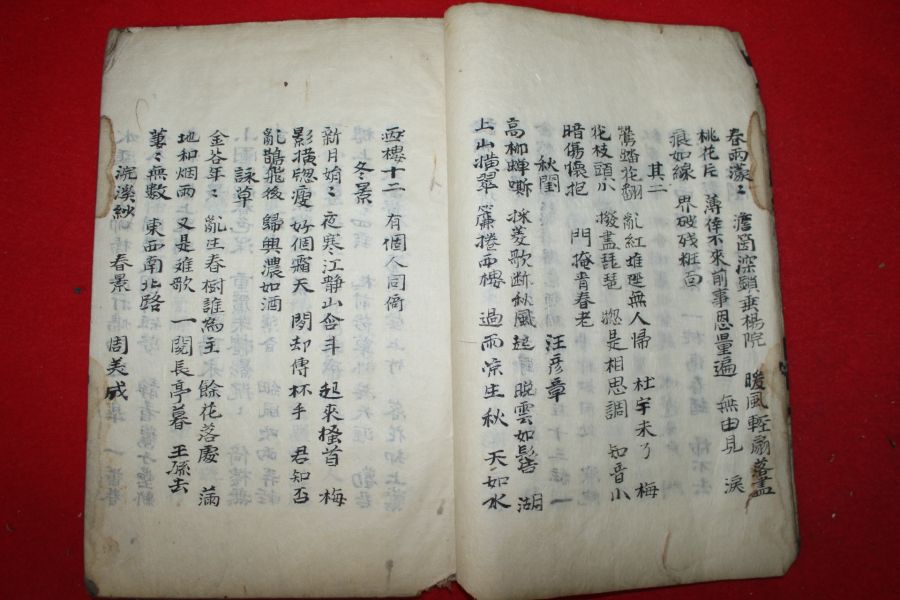 春雨濛〻 澹窓深鎖垂楊院 暖風輕扇落盡
桃花片 薄倖不來前事恩量遍 無由見 淚
痕如線 界破残粧面
其二
鶯 花翻 亂紅堆逕無人帰 杜宇未了 梅
花枝頭小 撥盡琵琶 惣是相思調 知音小
暗傷懷抱 門掩青春老
秋閨 汪彦章
高柳蟬嘶 採菱歌断秋風起 晚雲如髻 湖
上山横翠 簾捲西樓 過雨凉生秋 天如水
西樓十二 有個人同倚
冬景
新月娟〻 夜寒江靜山含斗 起來搔首 梅
影横窓瘦 好個霜天 閑却傳杯手 君知否
亂鵶飛後 歸興濃如酒
詠草
金谷年〻 亂生春樹誰為主 餘花落處 滿
地和烟雨 又是離歌 一闋長亭暮 王孫去
萋〻無數 東西南北路
浣溪紗 春景 周美成